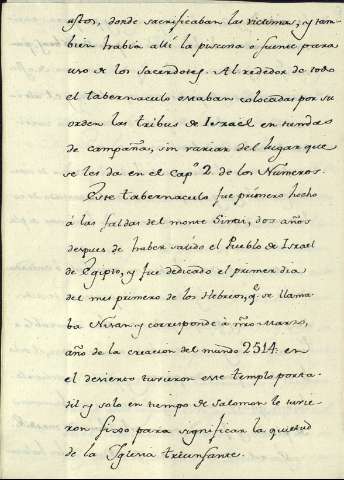 ustos, donde sacrificaban las victimas; y tam-
bien habia allí la piscina ó fuente para
uso de los sacerdotes. Al rededor de todo
el tabernaculo estaban colocadas por su
orden las tribus de Israel en tiendas
de campaña, sin variar del lugar que
se les da en el cap.º 2. de los Numeros.
Este tabernaculo fue primero hecho
á las faldas del monte Sinai, dos años
despues de haber salido el Pueblo de Israel
de Egipto, y fue dedicado el primer dia
del mes primero de los Hebreos, q.e se llama-
ba Nisan y corresponde á nro Marzo,
año de la creacion del mundo 2514. en
el desierto tuvieron este templo porta-
dil, y solo en tiempo de Salomon le tuvie-
ron fixo para significar la quietud
de la Iglesia triunfante.